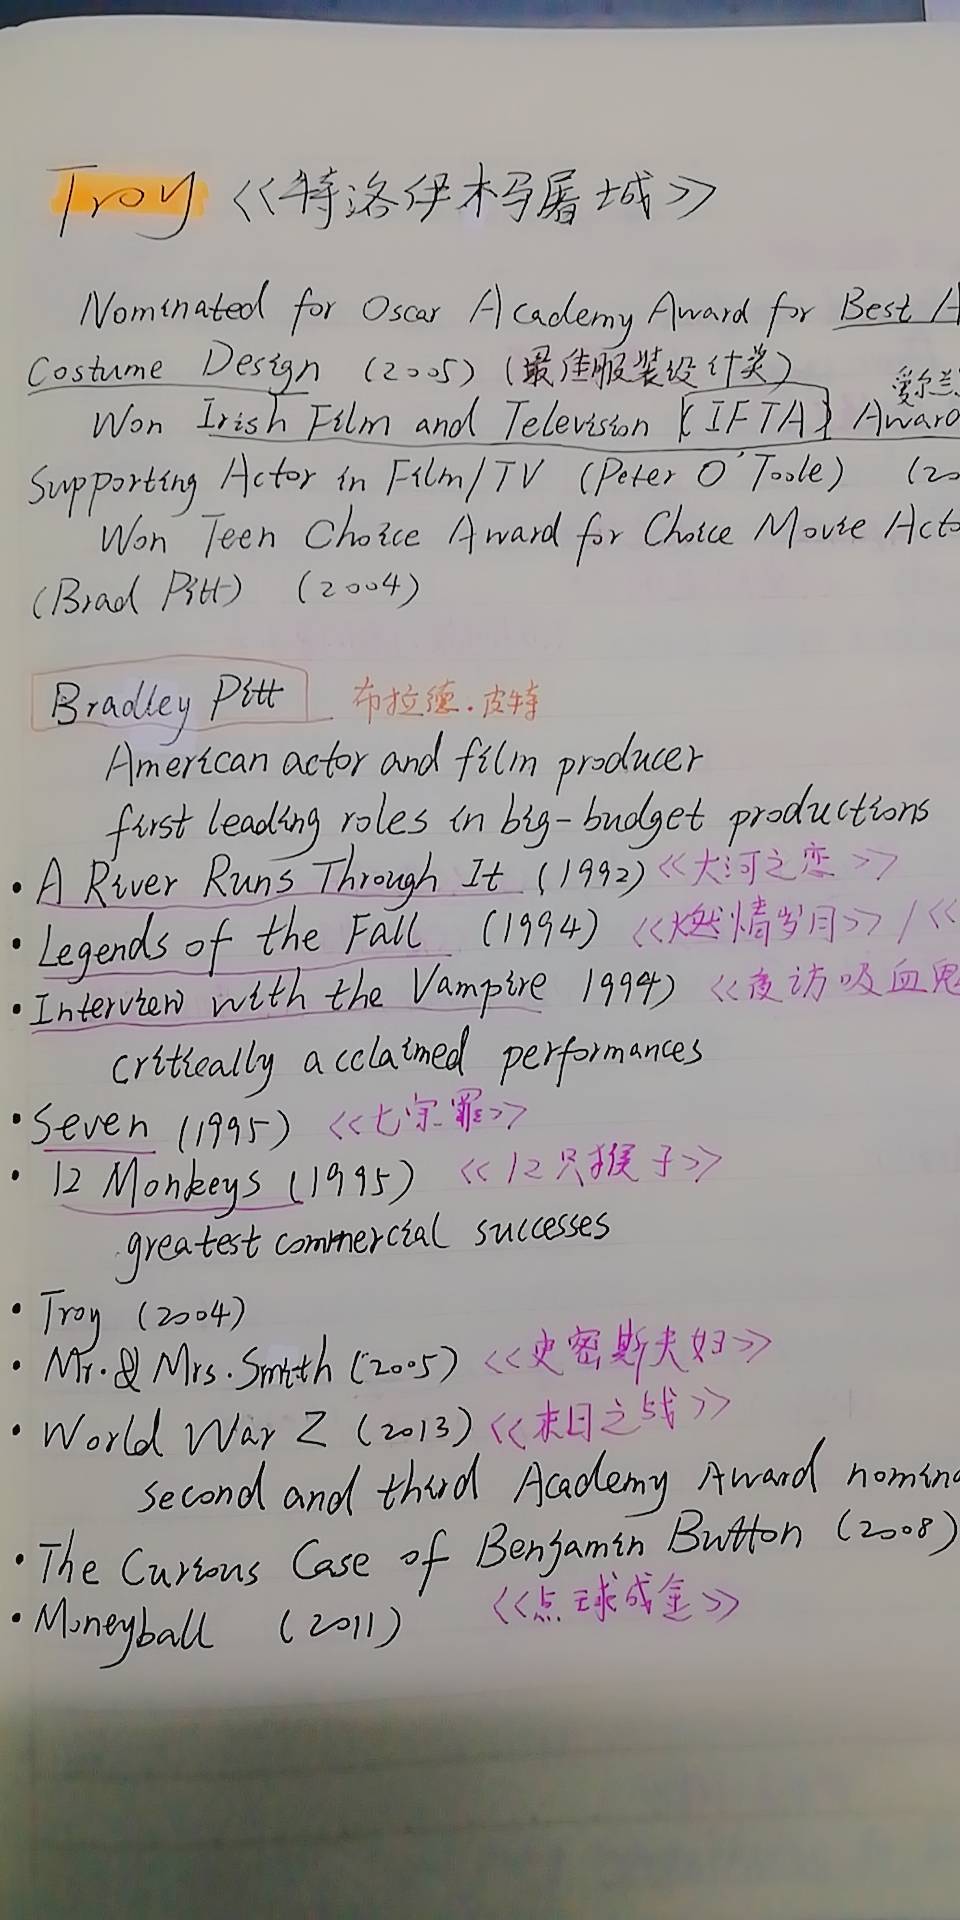 Troy 《特洛伊木马屠城》
Nominated for Oscar Academy Award for Best A
Costume Design (2005) (最佳服装设计奖)
爱尔兰
Won Irish Film and Television [IFTA] Award
Supporting Actor in Film/TV (Peter O'Toole) (20
Won Teen Choice Award for Choice Movie Acto
(Brad Pitt) (2004)
Bradley Pitt 布拉德.皮特
American actor and film producer
first leading roles in big-budget productions
• A River Runs Through It (1992) 《大河之恋》
• Legends of the Fall (1994) 《燃情岁月》/《
• Interview with the Vampire 1994) 《夜访吸血鬼
critically acclaimed performances
• Seven (1995) 《七宗罪》
• 12 Monkeys (1995) 《12只猴子》
greatest commercial successes
• Troy (2004)
• Mr. & Mrs. Smith (2005) 《史密斯夫妇》
• World War Z (2013) 《末日之战》
second and third Academy Award nomina
• The Curious Case of Benjamin Button (2008)
• Moneyball (2011) 《点球成金》